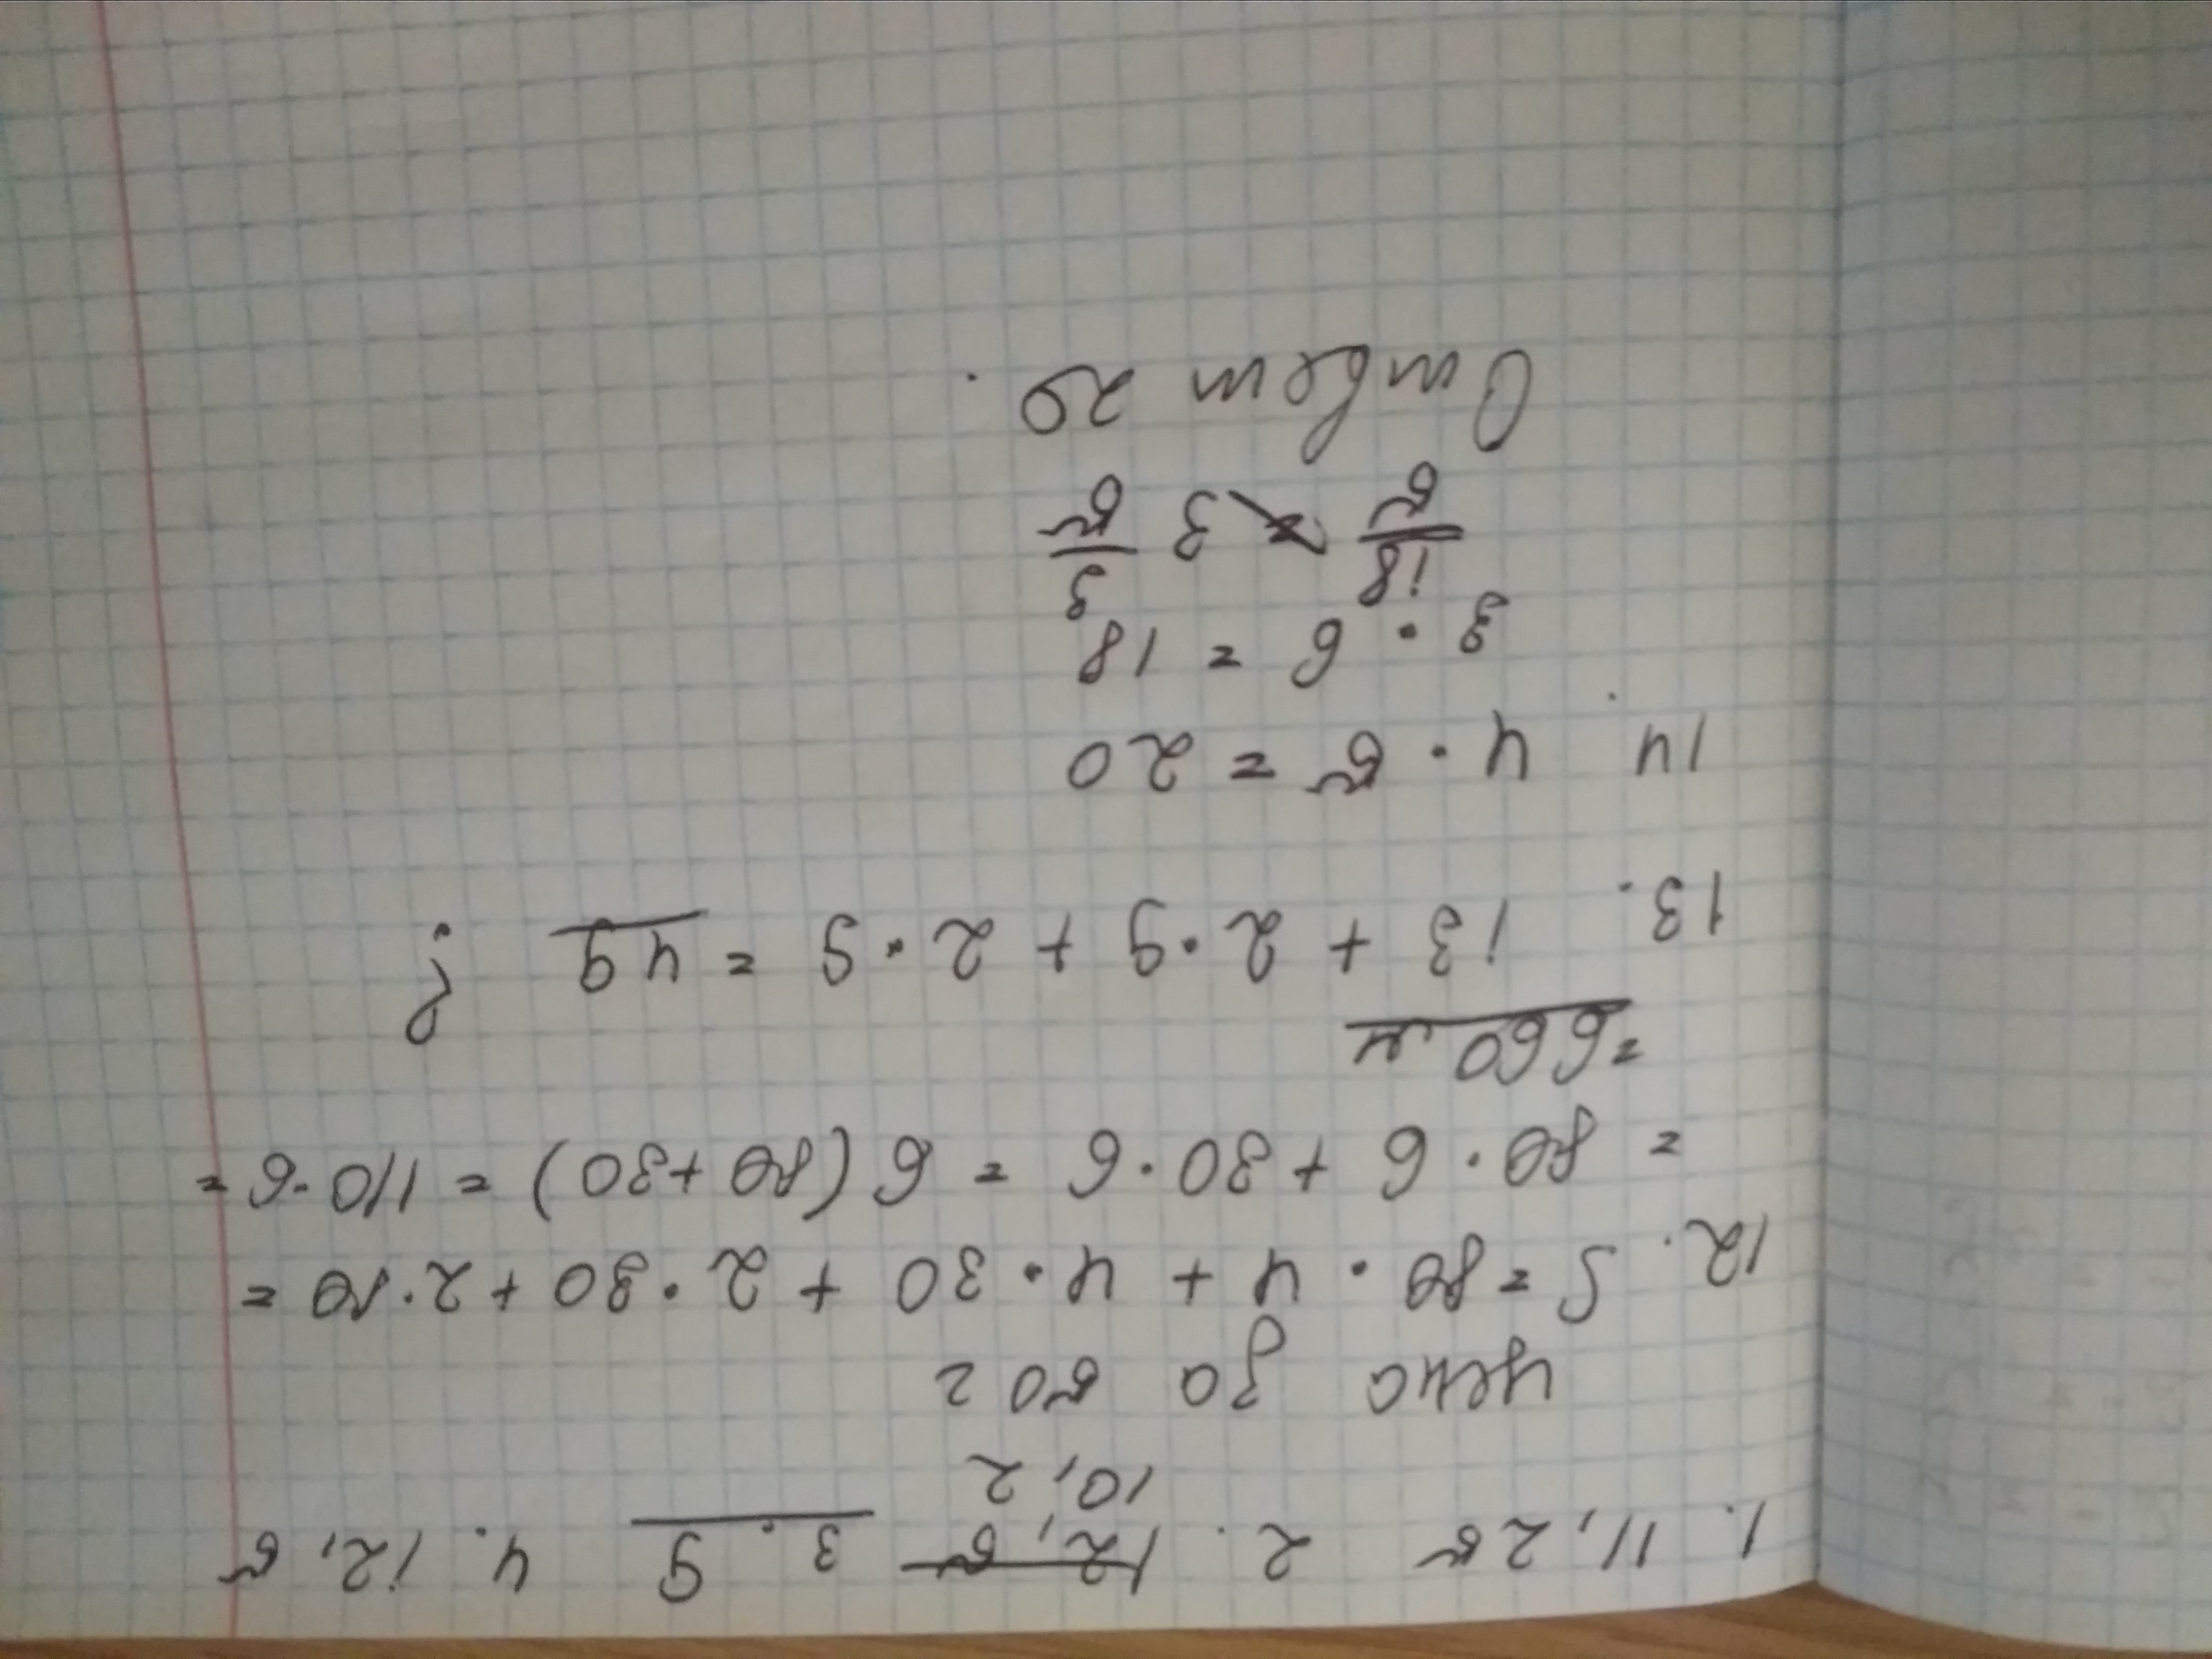 1. 11,25 2. 12,5 3. 9 4. 12,5
10,2
цена за 50 г
12. S = 80 · 4 + 4 · 30 + 2 · 30 + 2 · 80 =
= 80 · 6 + 30 · 6 = 6 (80 + 30) = 110 · 6 =
= 660 м
13. 13 + 2 · 9 + 2 · 9 = 49 ?
14. 4 · 5 = 20
3 · 6 = 18
18/5 3 3/5
Ответ 20.